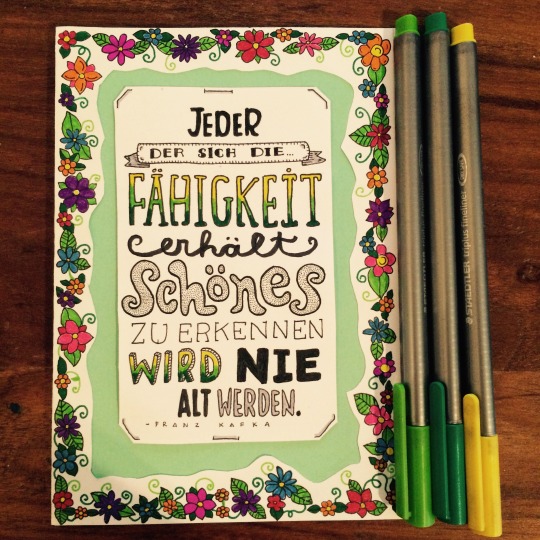 JEDER
DER SICH DIE...
FÄHIGKEIT
erhält
SCHÖNES
ZU ERKENNEN
WIRD NIE
ALT WERDEN.
-FRANZ KAFKA
STAEDTLER triplus fineliner